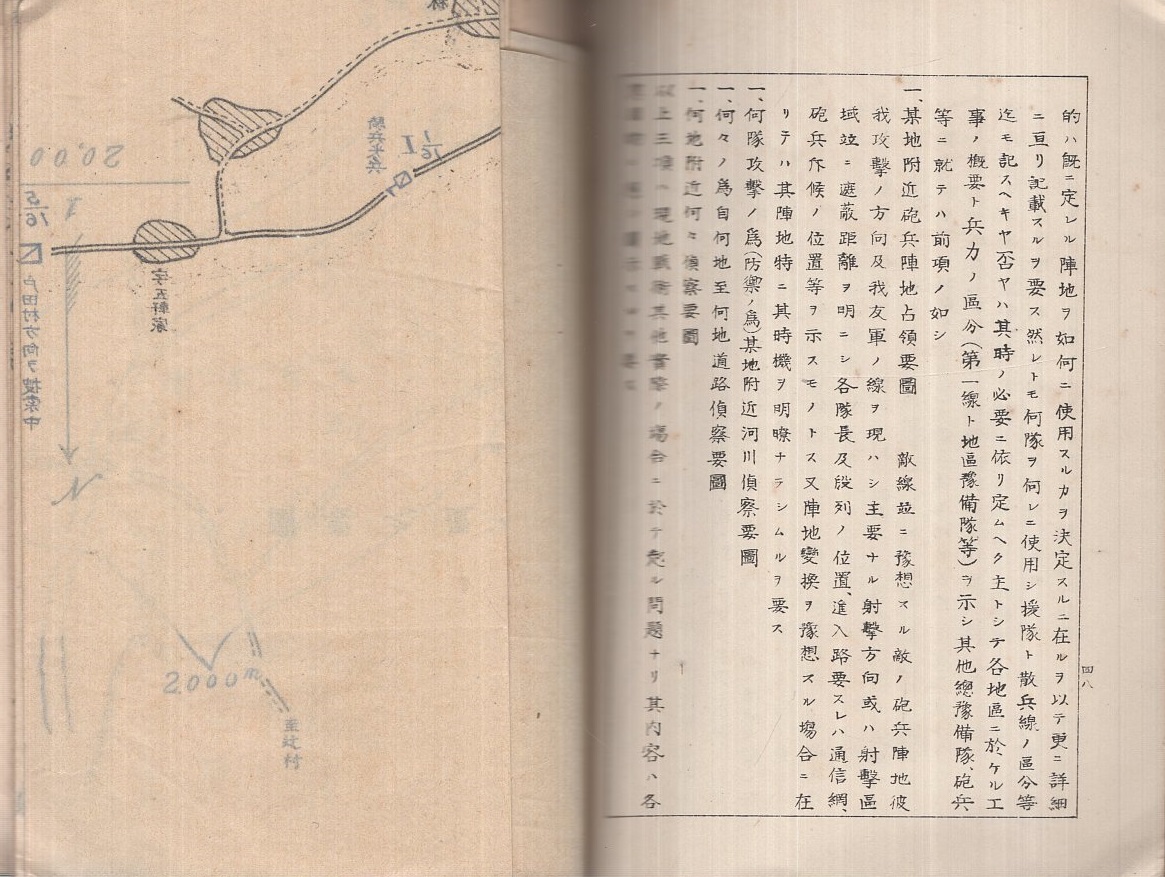 的ハ既ニ定レル陣地ヲ如何ニ使用スルカヲ決定スルニ在ルヲ以テ更ニ詳細
ニ亘リ記載スルヲ要ス然レトモ何隊ヲ何レニ使用シ援隊ト散兵線ノ區分等
迄モ記スヘキヤ否ヤハ其時ノ必要ニ依リ定ムヘク主トシテ各地區ニ於ケル工
事ノ概要ト兵力ノ區分(第一線ト地區豫備隊等)ヲ示シ其他總豫備隊、砲兵
等ニ就テハ前項ノ如シ
一、某地附近砲兵陣地占領要圖　敵線並ニ豫想スル敵ノ砲兵陣地彼
我攻擊ノ方向及我友軍ノ線ヲ現ハシ主要ナル射擊方向或ハ射擊區
域並ニ遮蔽距離ヲ明ニシ各隊長及段列ノ位置、進入路要スレハ通信網、
砲兵斥候ノ位置等ヲ示スモノトス又陣地變換ヲ豫想スル場合ニ在
リテハ其陣地特ニ其時機ヲ明瞭ナラシムルヲ要ス
一、何隊攻擊ノ爲(防禦ノ爲)某地附近河川偵察要圖
一、何々ノ爲自何地至何地道路偵察要圖
一、何地附近何々偵察要圖
以上三項ハ現地戰術其他實際ノ場合ニ於テ起ル問題ナリ其内容ハ各
四八
森
騎兵半兵
1/16 I
20,00
5/16
戸田村方向ヲ捜索中
字五軒家
N
2000m
至辻村